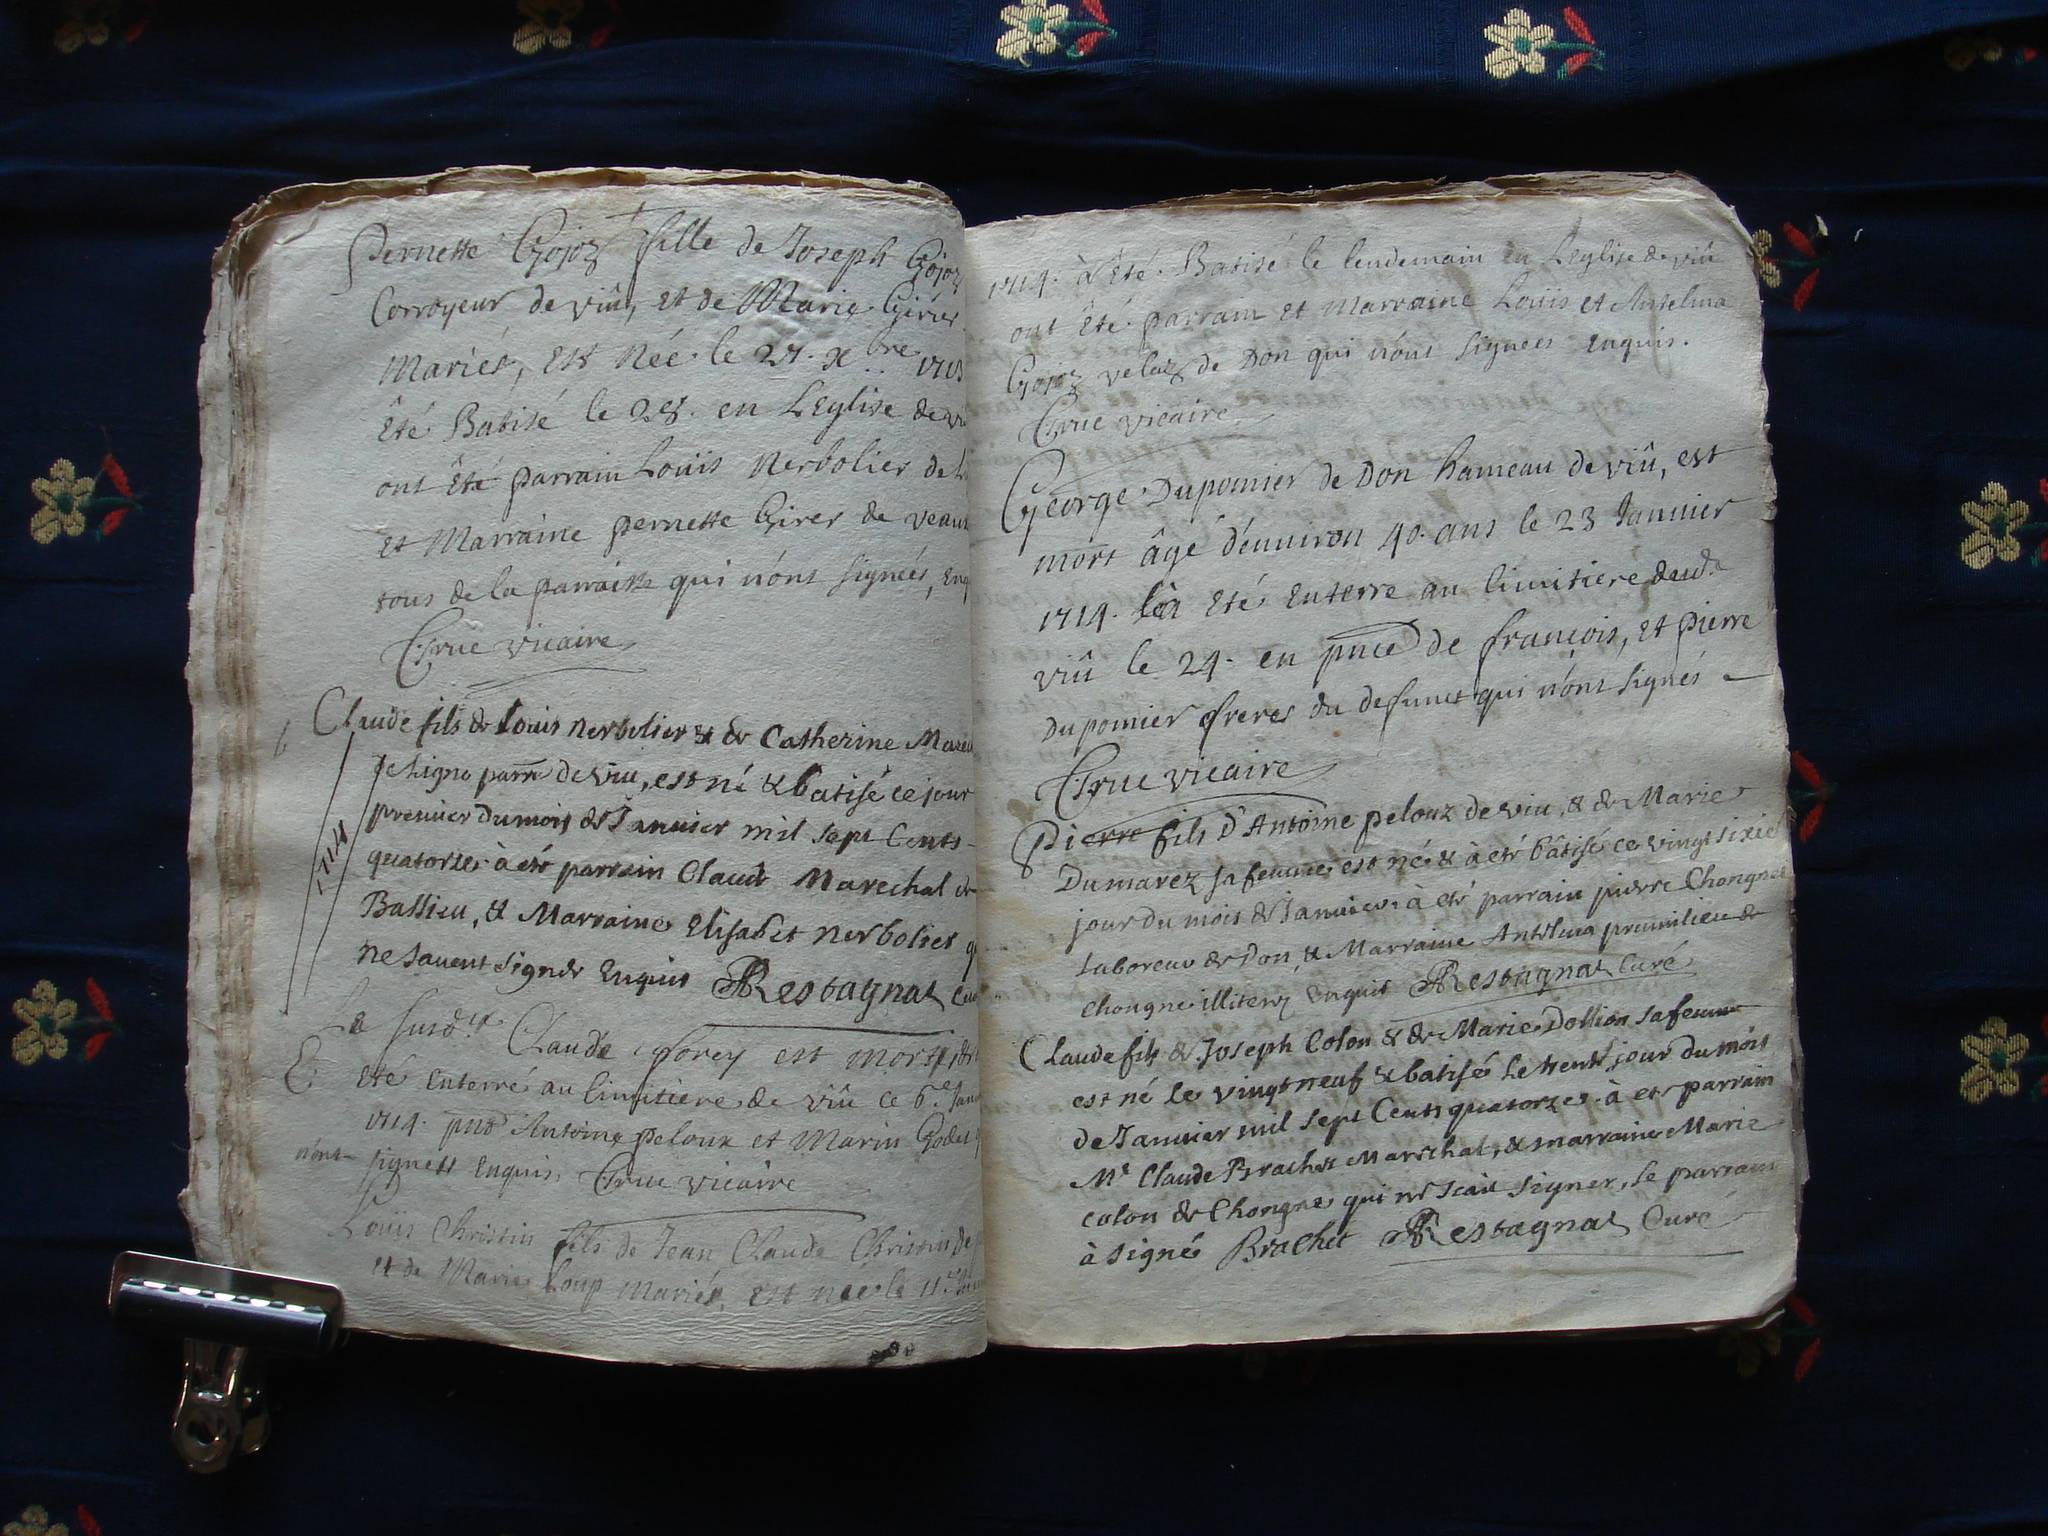 Pernette Gojoz fille de Joseph Gojoz
Corroyeur de viû, et de Marie Girier
Mariés, est Née le 27. xbre 1713
Êté Batisé le 28. en LEglise de
ont Êté parrain Louis Nerbolier de
et Marraine pernette Girer de
tous de la parroisse qui n'ont signées,
Grue vicaire
Claude fils de Louis Nerbolier & de Catherine
parre de viu, est né & batisé ce jour
premier du mois de Janvier mil sept Cents
quatorze à eté parrain Claude Marechal de
Bassieu, & Marraine Elisabet Nerbolier
ne savent signer Enquis Restagnat
1714
Le susdit Claude forey est mort,
E
Eté Enterré au cimitiere de viû ce 6e
1714. pnts Antoine peloux et Marin
n'ont signett Enquis, Grue vicaire
Louis Christin fils de Jean Claude Christin de
et de Marie Loup Mariés, est née le 11e
1714. à Eté Batisé le lendemain en LEglise de viû
ont Êté parrain et Marraine Louis et Antelma
Gojoz velaz de Don qui n'ont signees Enquis.
Grue vicaire
George Dupomier de Don hameau de viû, est
mort âgé d'environ 40. ans le 23 Janvier
1714. Eté Enterre au cimitiere dud.
viû le 24. en pnce de françois, et pierre
Dupomier freres du defunct qui n'ont signés
Grue vicaire
Pierre fils d'Antoine pelouz de viu, & de Marie
Dumarez sa femme est né & à eté bâtisé ce vingt sixie
jour du mois de Janvier à eté parrain pierre Chongne
laboreur de Don, & Marraine Antelma premilieu de
Chongne illiterez Enquis Restagnat Curé
Claude fils de Joseph Colon & de Marie Dollion sa femme
est né le vingt neuf & batisé le trente jour du mois
de Janvier mil sept Cents quatorze à eté parrain
Mr Claude Brachet Marechal, & marraine Marie
Colon de Chongne qui ne scait signer, le parrain
à signé Brachet Restagnat Curé